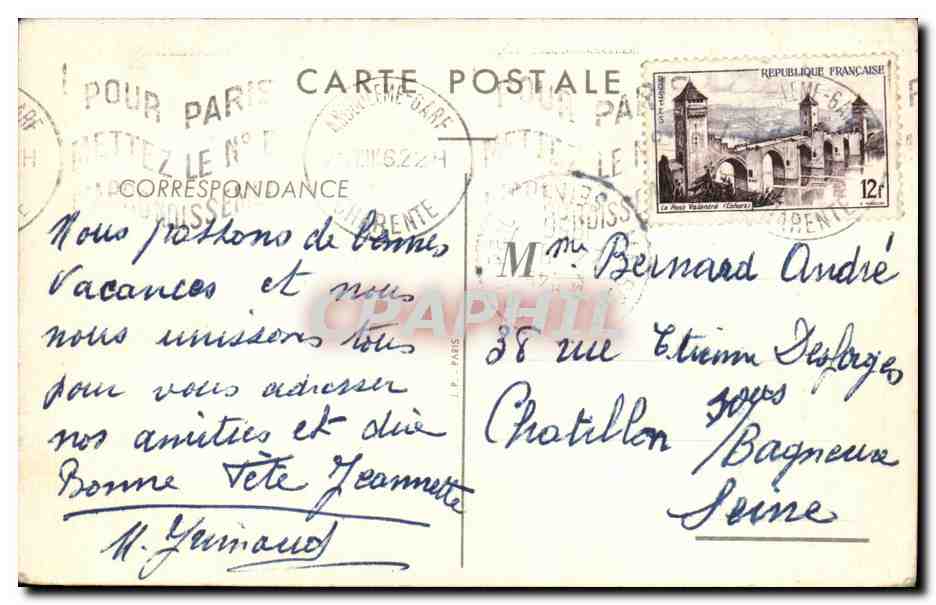 CARTE POSTALE
POUR PARIS
METTEZ LE N°
ANGOULEME-GARE
CHARENTE
REPUBLIQUE FRANÇAISE
POSTES
Le Pont Valentré (Cahors)
12f
CORRESPONDANCE
Nous passons de bonnes
vacances et nous
nous unissons tous
pour vous adresser
nos amitiés et dire
Bonne Fête Jeannette
Mme Bernard André
38 rue Etienne Desforges
Chatillon sous
/Bagneux
Seine
J. P. - PARIS
CPAPHIL